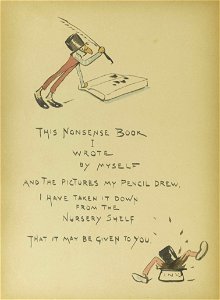 THIS NONSENSE BOOK
I
WROTE
BY MYSELF
AND THE PICTURES MY PENCIL DREW,
I HAVE TAKEN IT DOWN
FROM THE
NURSERY SHELF
THAT IT MAY BE GIVEN TO YOU.
INK